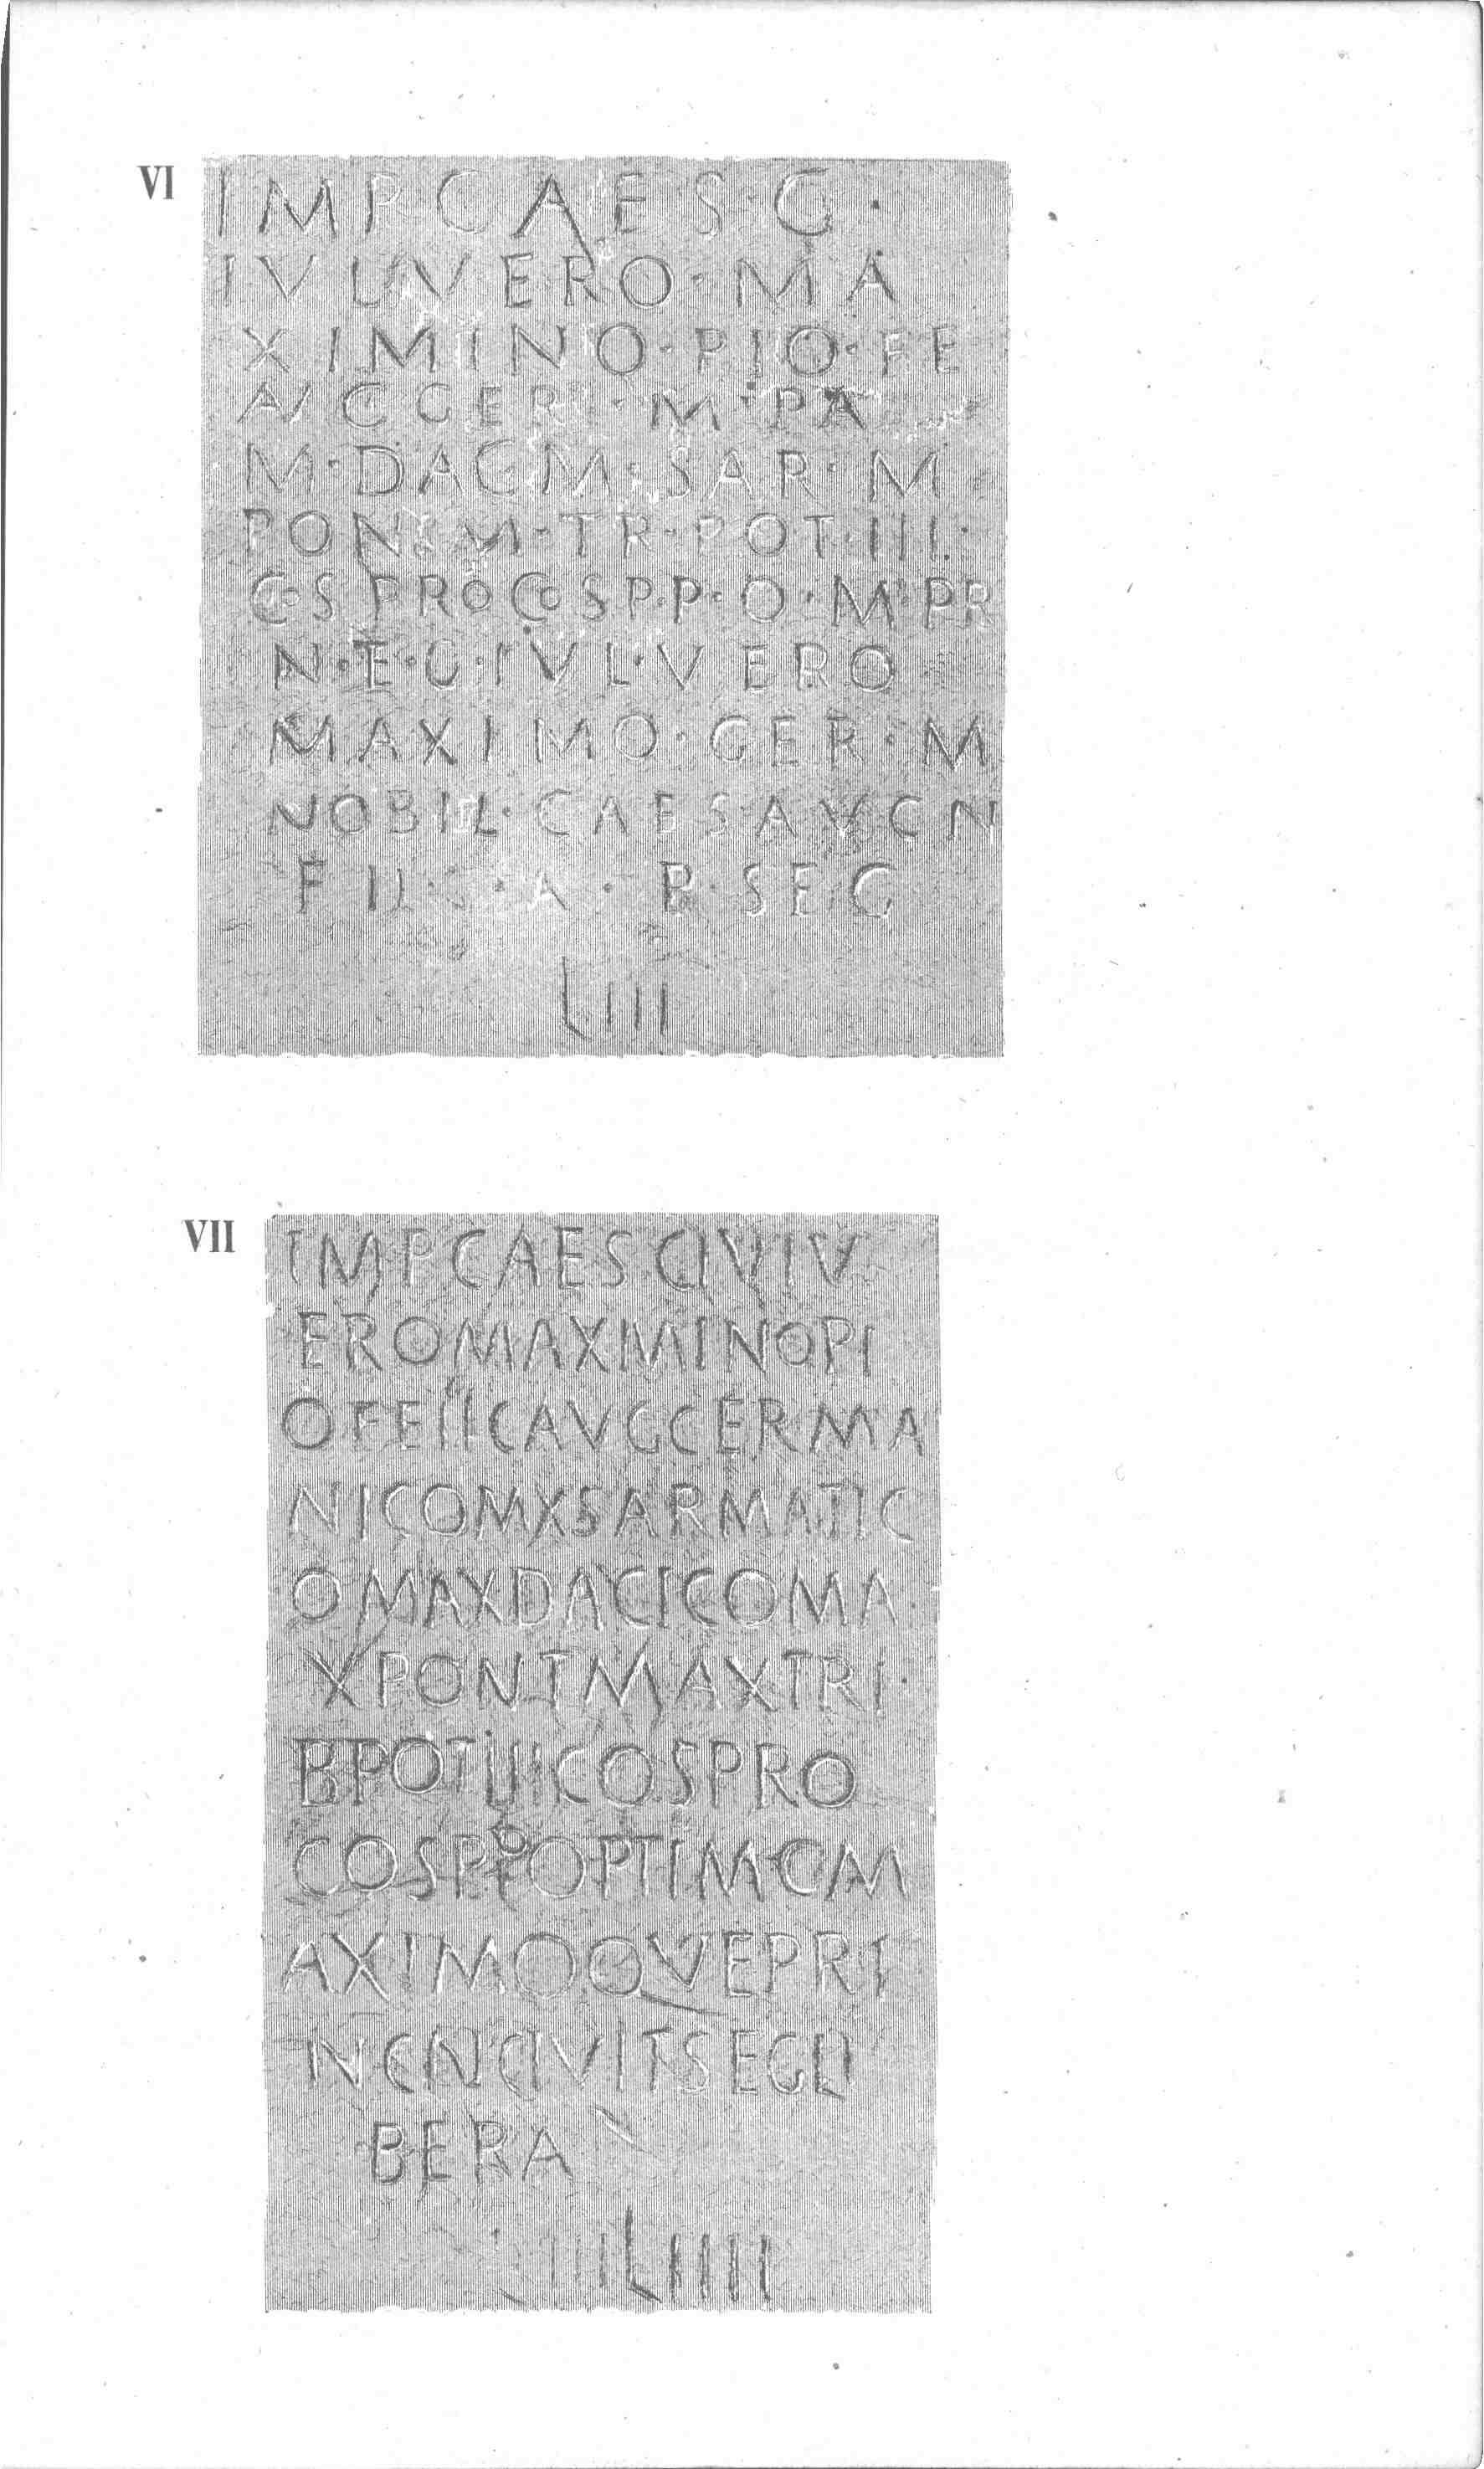 VI
IMP CAES·G·
IVL·VERO·MA
XIMINO·PIO·FE
AVG GER·M·PA
M·DAC·M·SAR·M
PONT M·TR·POT·III·
COS PROCOS P·P·O·M·PR
N·E·G·IVL·VERO
MAXIMO·GER·M
NOBIL·CAES AVG N
A B·SEG
LIII
VII
IMP CAES CIVIV
ERO MAXMINO PI
O FEIIC AVG CERMA
NICO MX SARMATIC
O MAX DACICO MA
X PONT MAX TRI·
B POT III COS PRO
COS PP OPTIMO M
AXIMOQVE PRI
BERA
LIIII